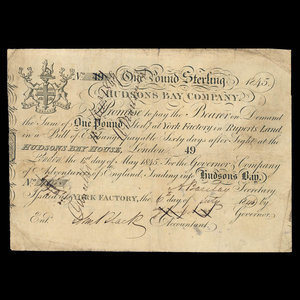 No 49 One Pound Sterling 1845
HUDSONS BAY COMPANY.
I Promise to pay the Bearer on Demand
the Sum of One Pound Sterlg at York Factory in Ruperts Land
in a Bill of Exchange payable Sixty days after Sight at the
HUDSONS BAY HOUSE, London 49
London the 1st day of May 1845 For the Governor & Company
of Adventurers of England, Trading into Hudsons Bay.
Secretary
Issued at YORK FACTORY, the 6 day of July 184
Governor.
Entd. Accountant.